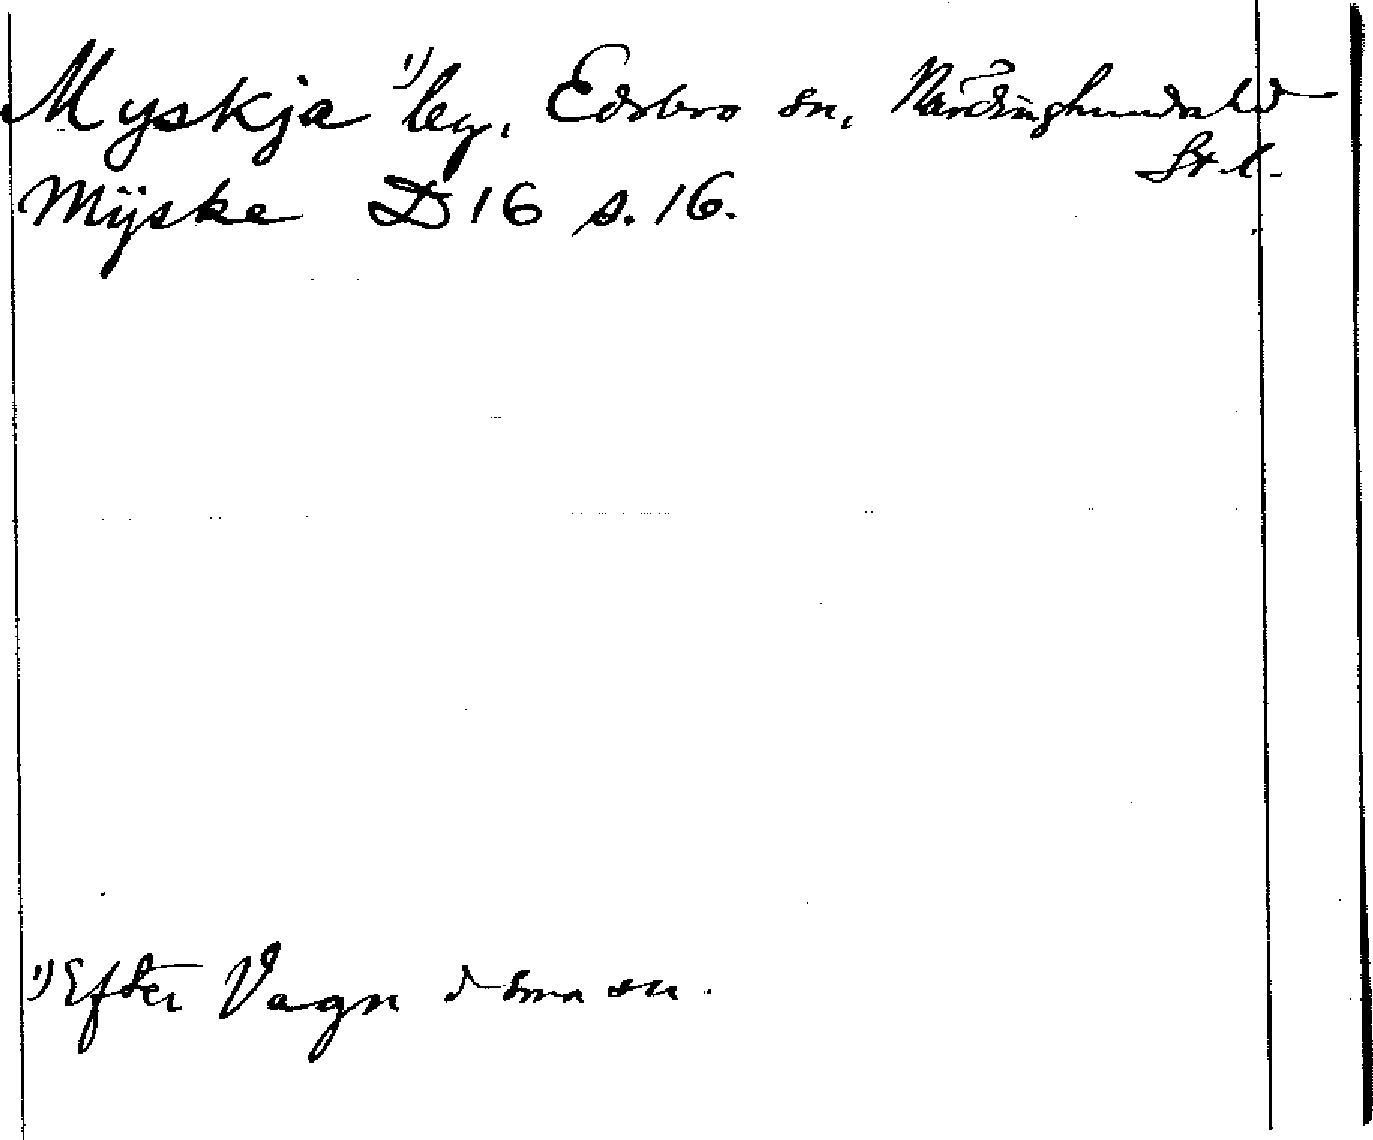 Myskja ¹⁾ beg. Edsbro sn, Närdinghundra hd
St. l.
Mÿske D 16 s. 16.
¹⁾ Efter Vagn i sma sn.